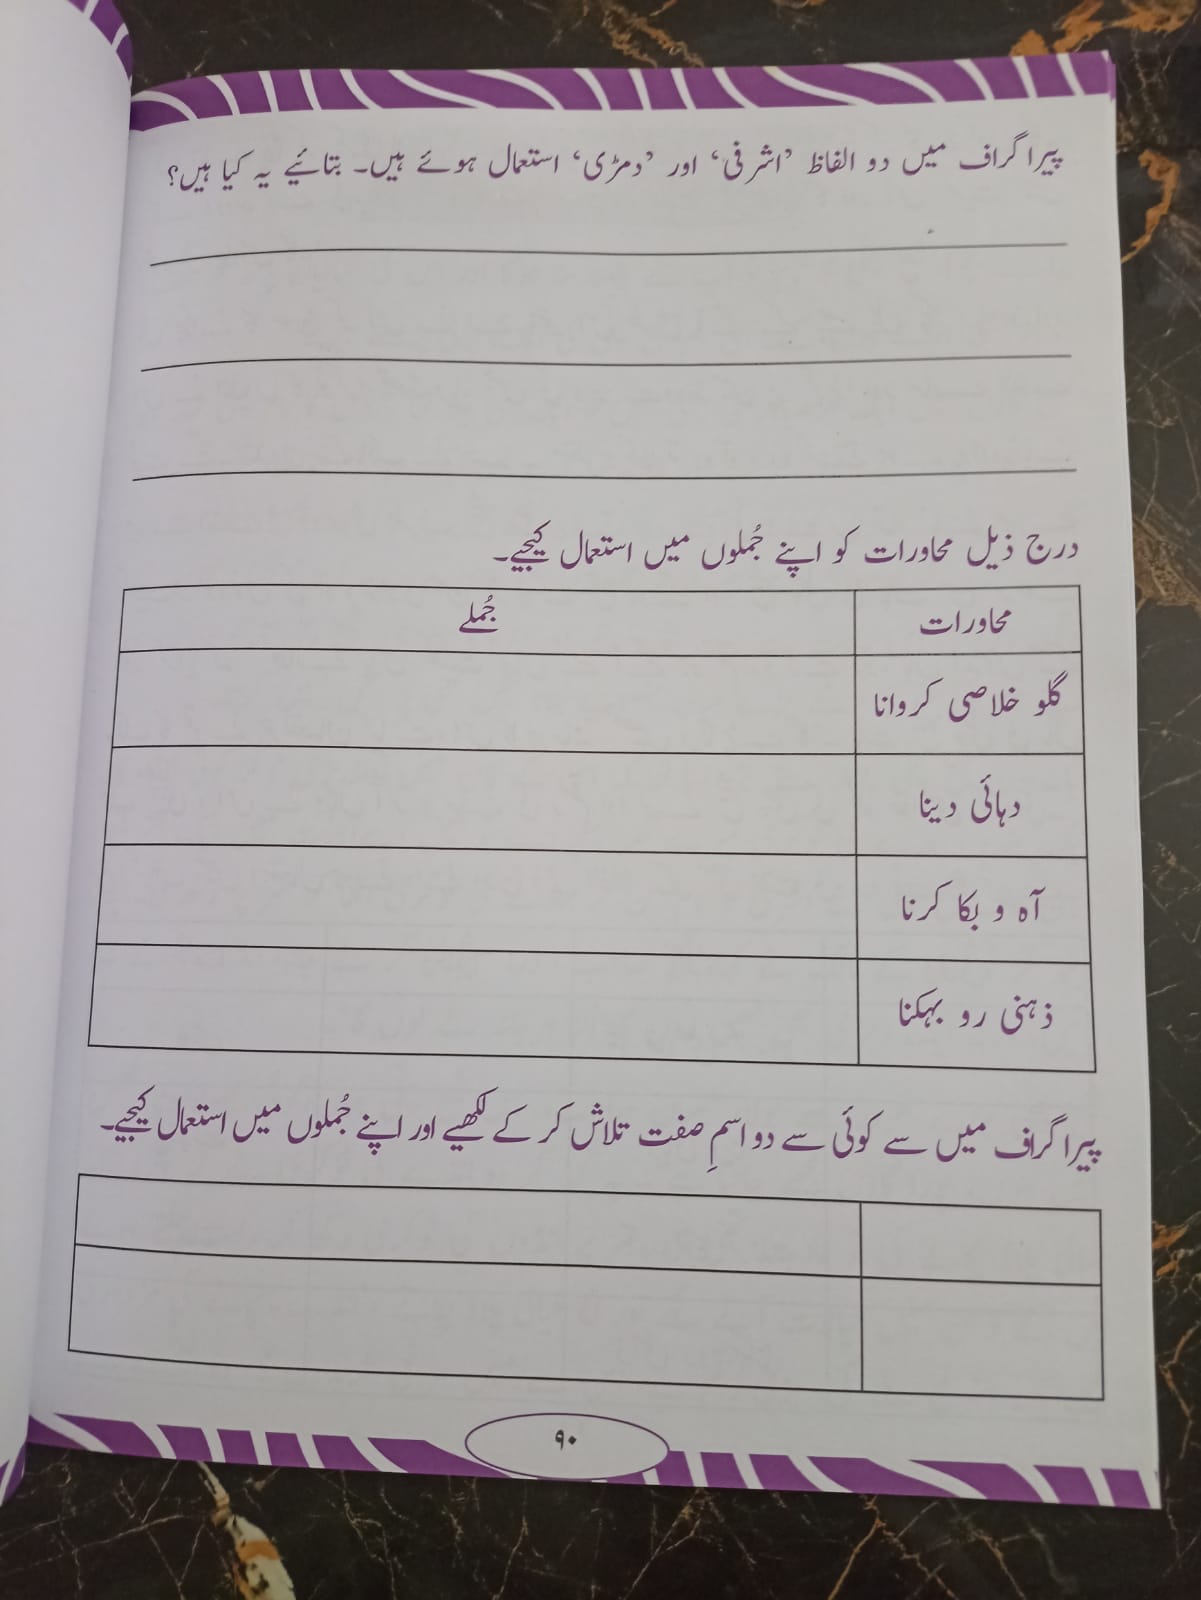 پیراگراف میں دو الفاظ ’اشرفی‘ اور ’دمڑی‘ استعمال ہوئے ہیں۔ بتائیے یہ کیا ہیں؟
درج ذیل محاورات کو اپنے جُملوں میں استعمال کیجیے۔
محاورات جُملے
گلو خلاصی کروانا
دہائی دینا
آہ و بکا کرنا
ذہنی رو بہکنا
پیراگراف میں سے کوئی سے دو اسمِ صفت تلاش کر کے لکھیے اور اپنے جُملوں میں استعمال کیجیے۔
۹۰